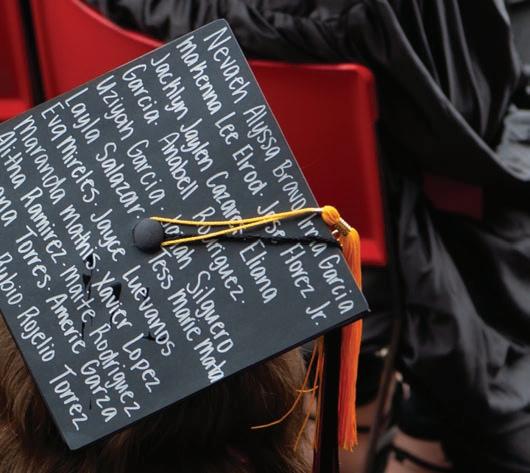 Nevaeh Alyssa Bravo Irma Garcia
Makenna Lee Elrod Jose Florez Jr.
Jacklyn Jaylen Cazares. Eliana
Garcia Anabell Rodriguez.
Uziyah Garcia Silguero
Layla Salazar. Tess Marie Mata
Eva Mireles Jayce Luevanos
Maranda Mathis Xavier Lopez
Ramirez Maite Rodriguez
Torres. Amerie Garza
Rubio Rojelio Torrez